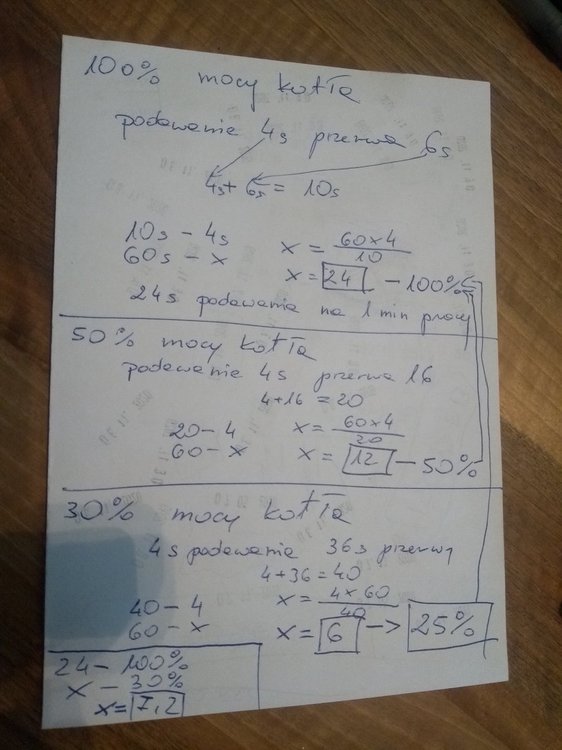 100% mocy kotła
podawanie 4s przerwa 6s
4s + 6s = 10s
10s - 4s
60s - x
x = 60x4 / 10
x = 24 - 100%
24s podawania na 1 min pracy
50% mocy kotła
podawanie 4s przerwa 16
4+16 = 20
20 - 4
60 - x
x = 60x4 / 20
x = 12 - 50%
30% mocy kotła
4s podawania 36s przerwy
4+36 = 40
40 - 4
60 - x
x = 4x60 / 40
x = 6 -> 25%
24 - 100%
x - 30%
x = 7,2